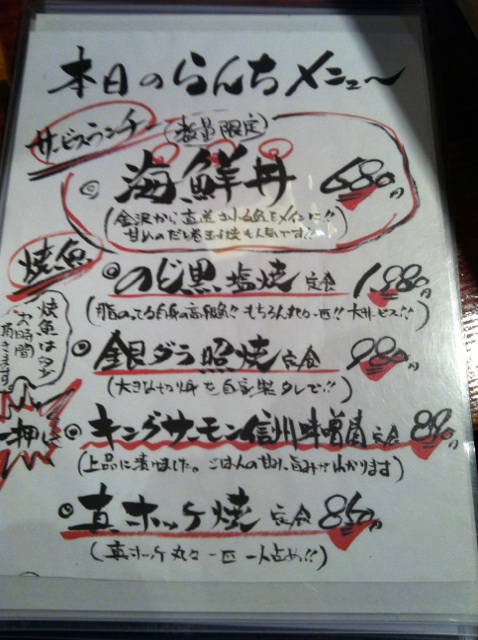 本日のらんちメニュー
サービスランチ
(数量限定)
海鮮丼 680円
(金沢から直送される魚をメインに!!
甘めのだし巻玉子焼も人気です!!)
焼魚
のど黒塩焼定食 1,980円
(脂のってる白身の高級魚!! もちろん丸々一匹!! 大サービス!!)
焼魚は少々
お時間
頂きます。
銀ダラ照焼定食 980円
(大きな切り身を自家製タレで!!)
一押し
キングサーモン信州味噌漬定食 880円
(上品に漬けました。ごはんの甘み、旨みがわかります)
真ホッケ焼定食 850円
(真ホッケ丸々一匹一人占め!!)